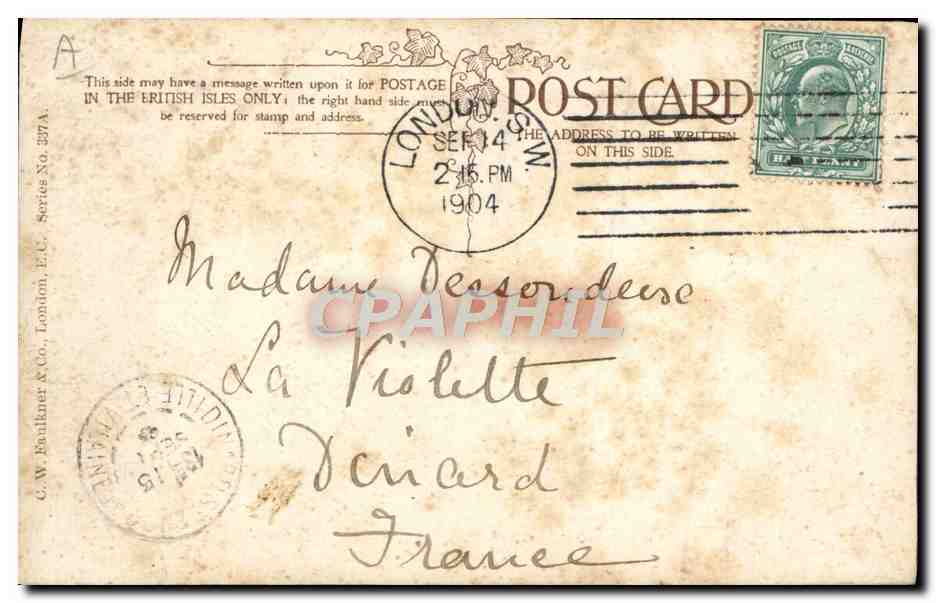 A
This side may have a message written upon it for POSTAGE
IN THE BRITISH ISLES ONLY; the right hand side must
be reserved for stamp and address.
POST CARD
THE ADDRESS TO BE WRITTEN
ON THIS SIDE.
POSTAGE REVENUE
HALFPENNY
LONDON. S.W.
SEP 14
2.15. PM
1904
Madame
La Violette
Dinard
France
C. W. Faulkner & Co., London, E.C. Series No. 337A.
CPAPHIL
15